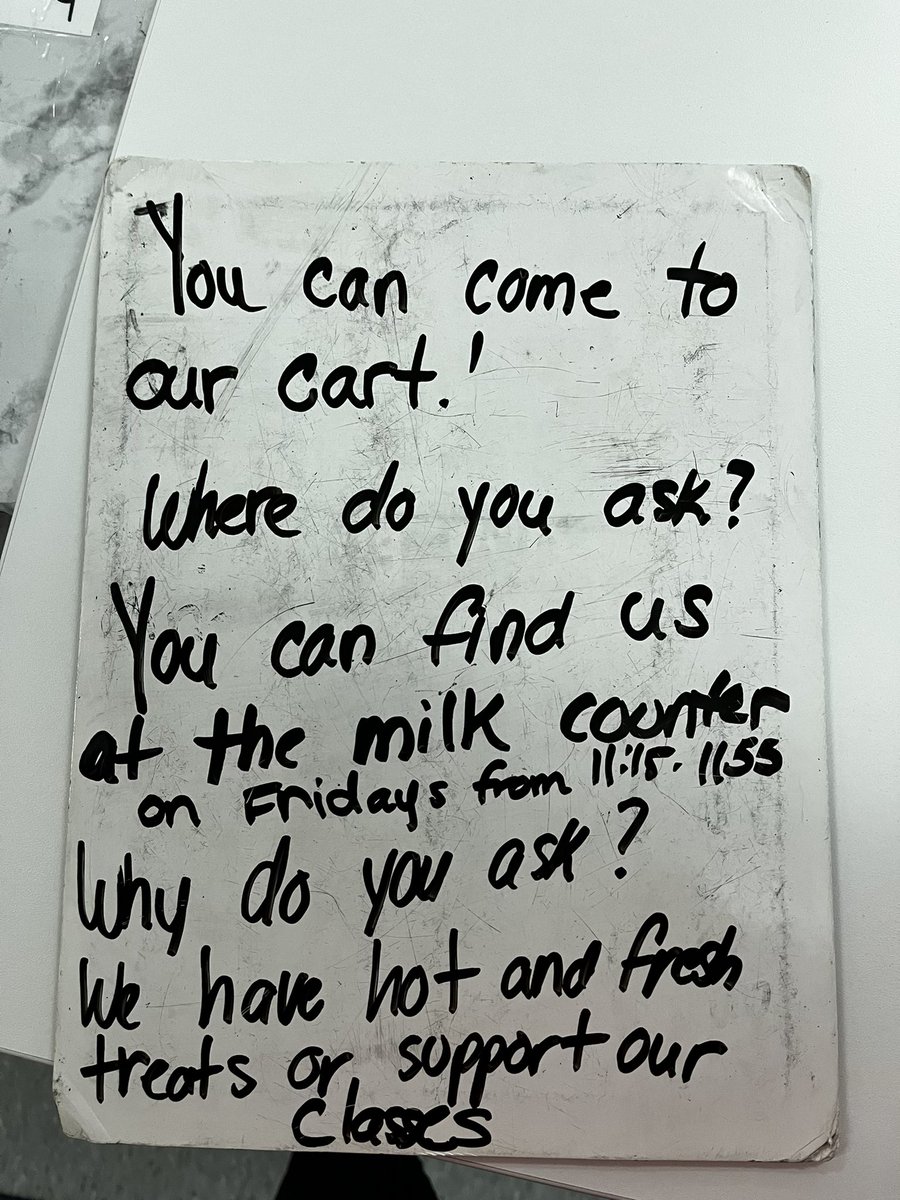 You can come to
our cart.!
Where do you ask?
You can find us
at the milk counter
on Fridays from 11:15. 1155
Why do you ask?
We have hot and fresh
treats or support our
classes